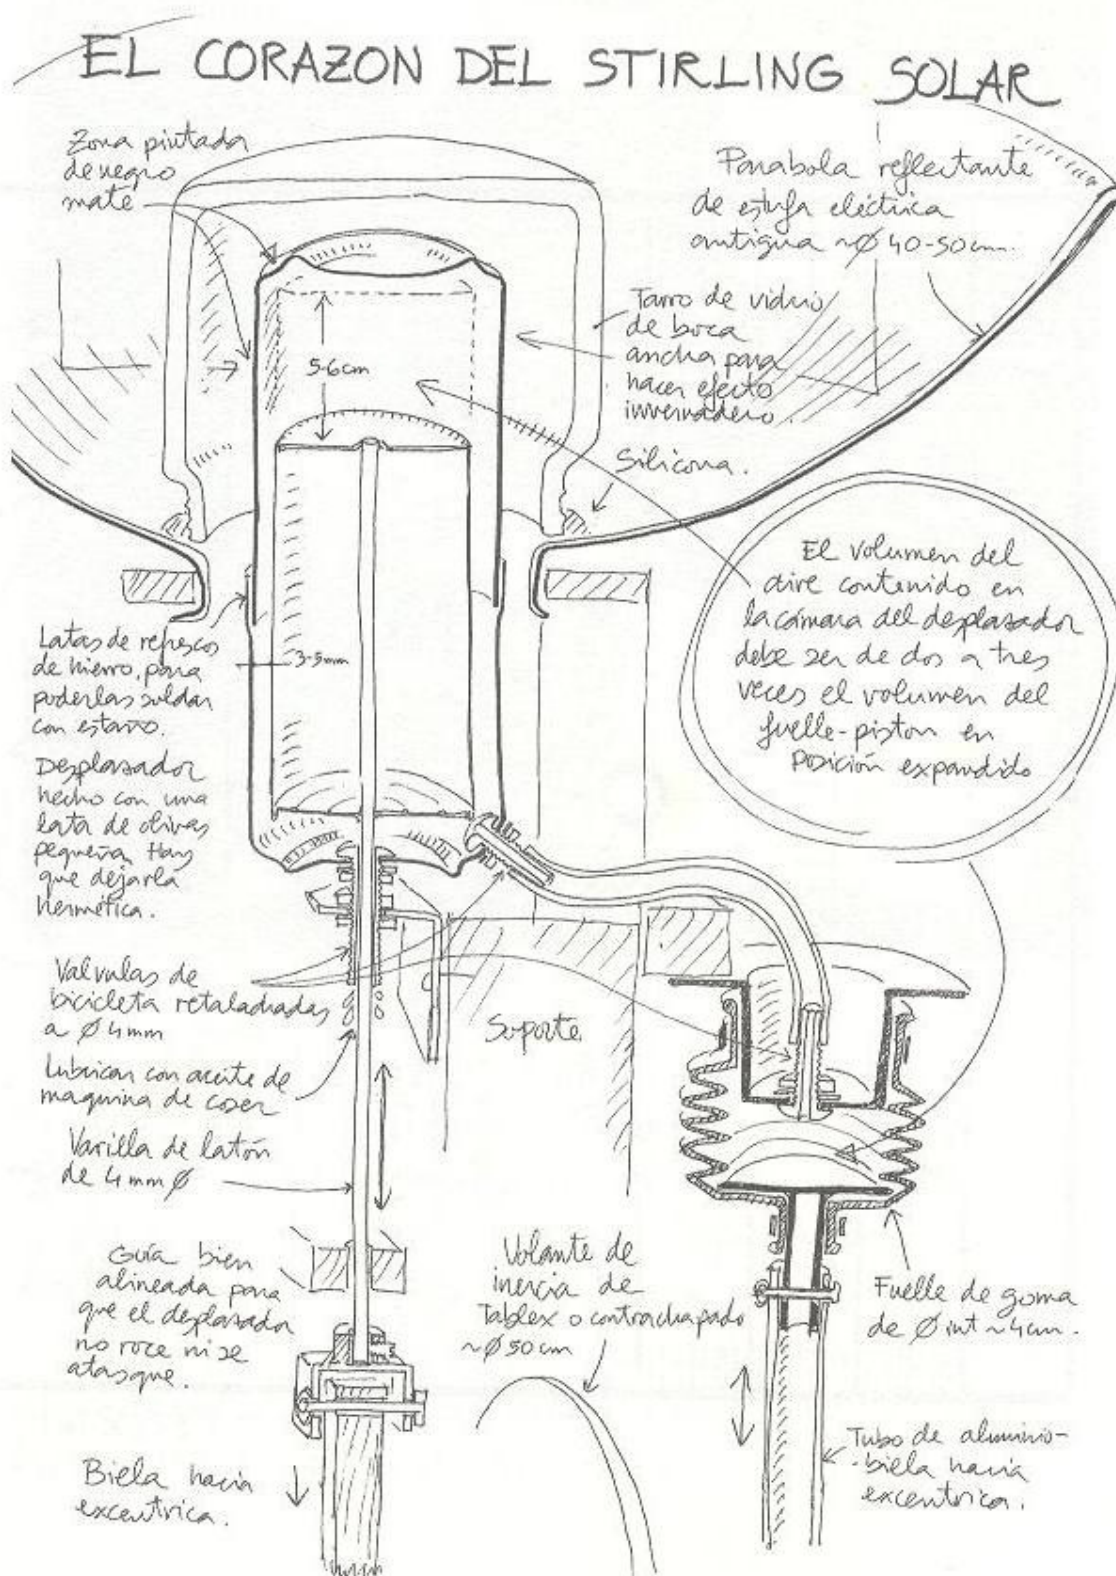 EL CORAZON DEL STIRLING SOLAR
Zona pintada
de negro
mate
Parabola reflectante
de estufa eléctrica
antigua ~Ø 40-50 cm.
Tarro de vidrio
de boca
ancha para
hacer efecto
invernadero.
5-6cm
Silicona.
El volumen del
aire contenido en
la cámara del desplazador
debe ser de dos a tres
veces el volumen del
fuelle-piston en
posición expandido
Latas de refrescos
de hierro, para
poderlas soldar
con estaño.
3-5mm
Desplazador
hecho con una
lata de olivas
pequeña. Hay
que dejarla
hermética.
Valvulas de
bicicleta retaladradas
a Ø 4mm
Soporte
Lubrican con aceite de
maquina de coser
Varilla de latón
de 4mm Ø
Guía bien
alineada para
que el desplazador
no roce ni se
atasque.
Volante de
inercia de
Tablex o contrachapado
~Ø50cm
Fuelle de goma
de Ø int ~4cm.
Biela hacia
excentrica.
Tubo de aluminio-
-biela hacia
excentrica.